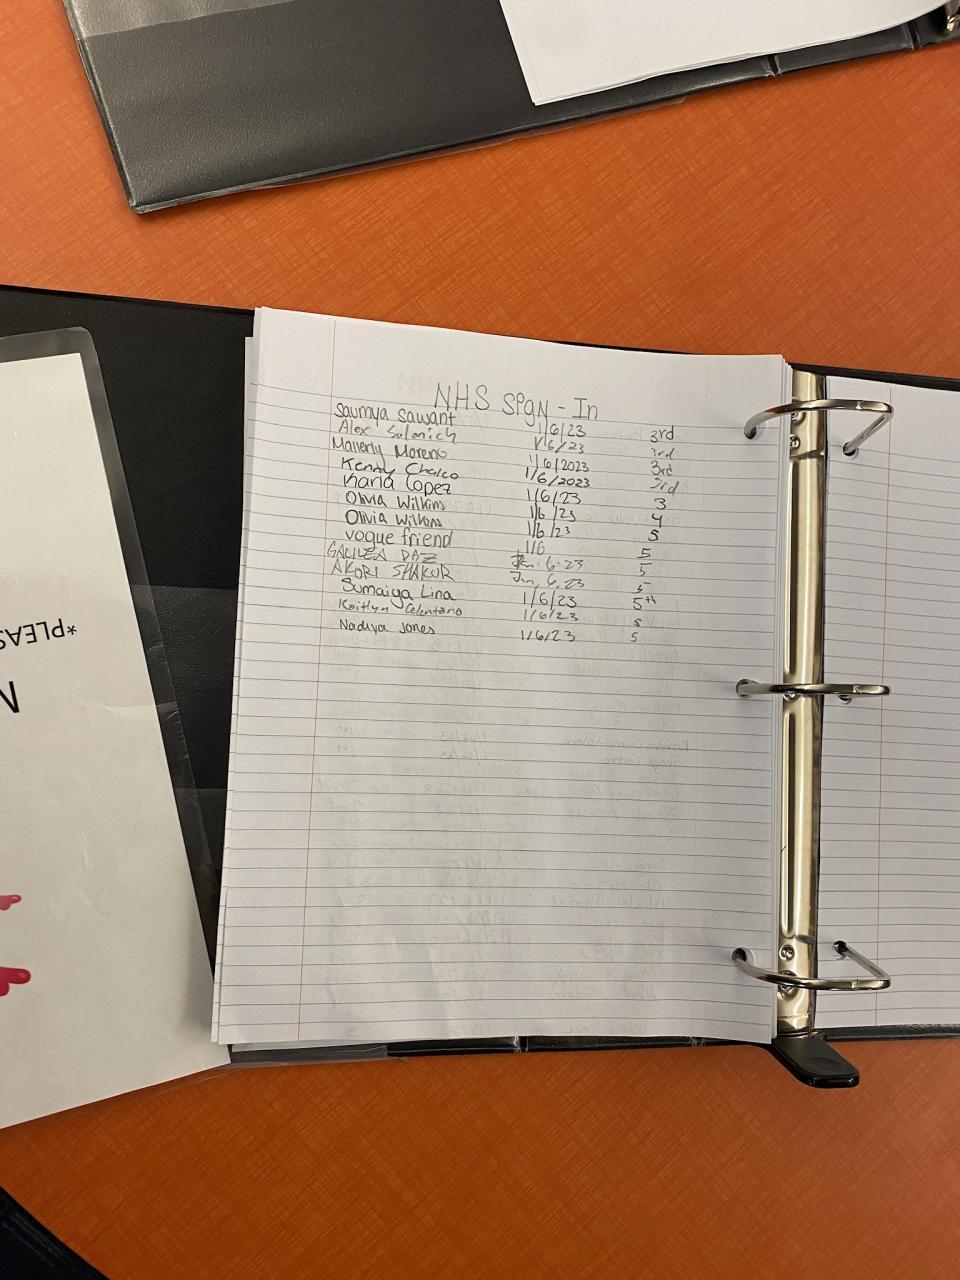 NHS SIgN - In
Saumya Sawant 1/6/23 3rd
Alex 1/6/23 3rd
Mallerly Moreno 1/6/2023 3rd
Kenny Chalco 1/6/2023 3rd
Karla Lopez 1/6/23 3
Olivia Wilkins 1/6/23 4
Olivia Wilkins 1/6/23 5
vogue friend 1/6 5
GALILEA DAZ Jan. 6. 23 5
AKORI SHAKUR Jan. 6. 23 5
Sumaiya Lina 1/6/23 5th
Kaitlyn Celentano 1/6/23 5
Nadiya Jones 1/6/23 5
*PLEAS
N